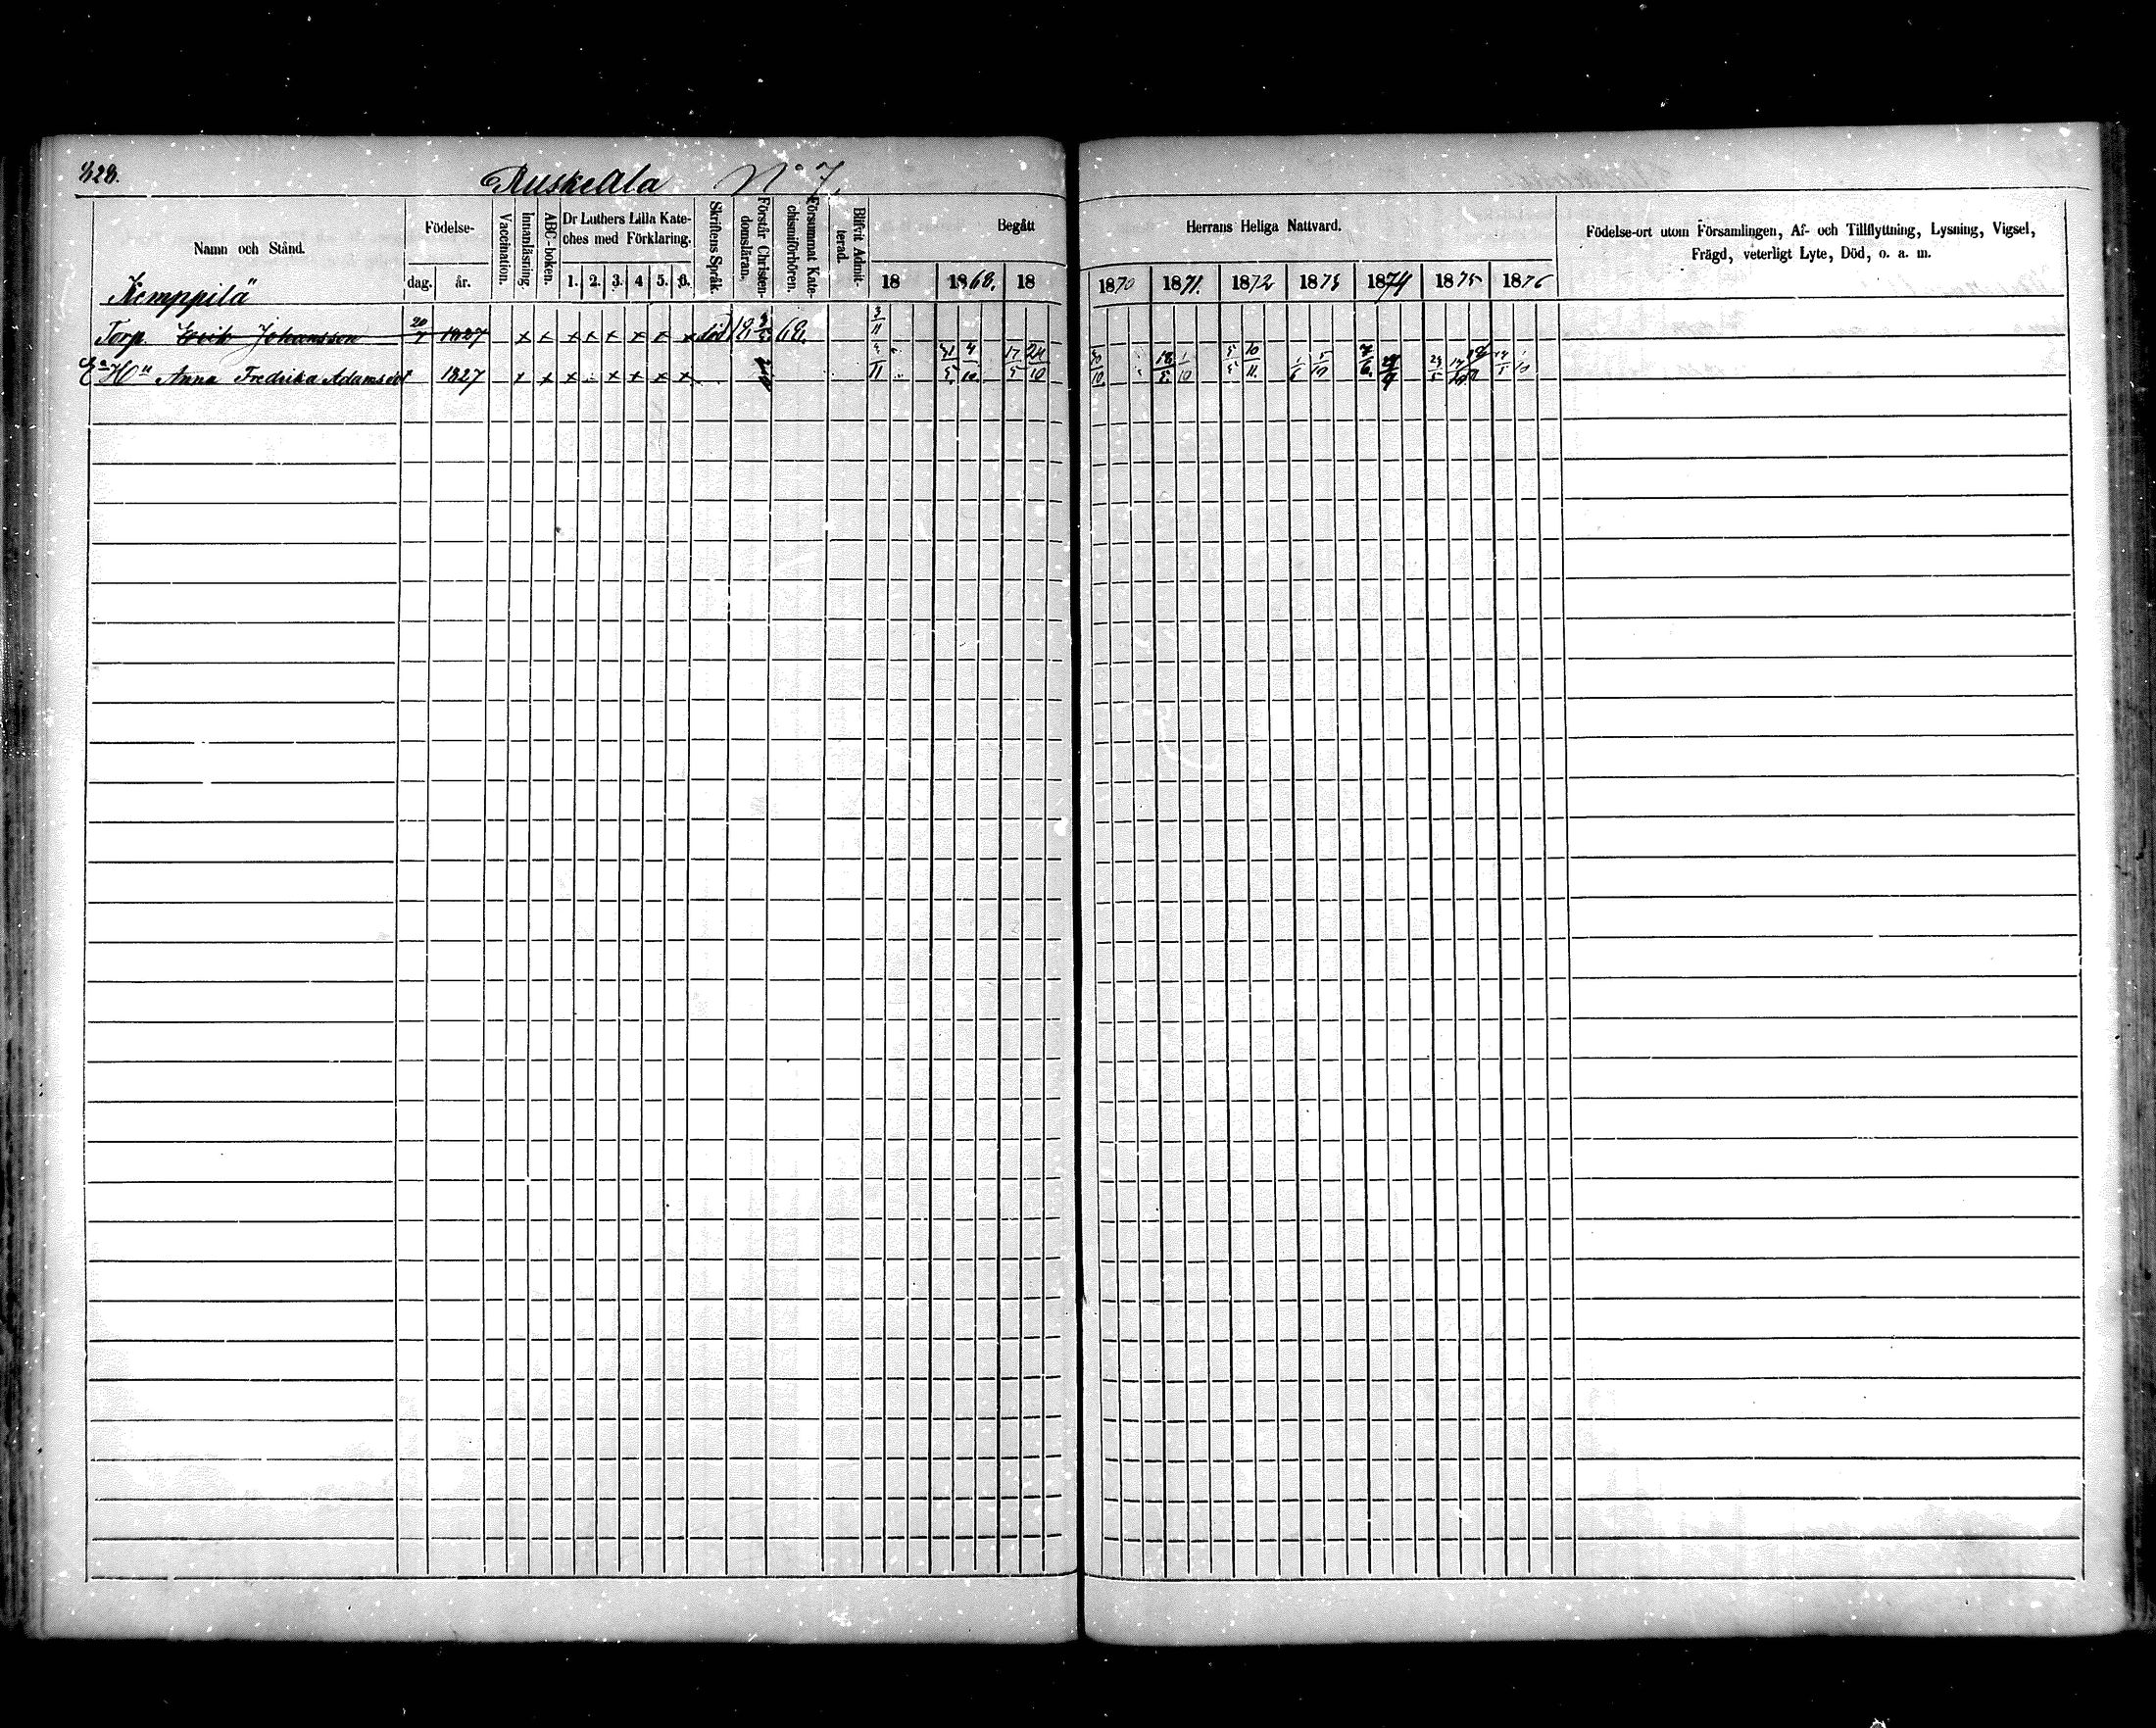 328.
Ruskeala N:o 7.
Namn och Stånd.
Födelse-
dag. år.
Vaccination.
Innanläsning.
ABC-boken.
Dr Luthers Lilla Kate-
ches med Förklaring.
1. 2. 3. 4 5. 6.
Skriftens Språk.
Förstår Christen-
domsläran.
Försummat Kate-
chismiförhören.
Blifvit Admit-
terad.
Begått
18 1868. 18
Herrans Heliga Nattvard.
1870 1871. 1872 1873 1874 1875 1876
Födelse-ort utom Församlingen, Af- och Tillflyttning, Lysning, Vigsel,
Frägd, veterligt Lyte, Död, o. a. m.
Kemppilä
Torp. Erik Johansson 20/7 1827 x x x x x x x x död 18 3/5 68. 3/11
E:a H:u Anna Fredrika Adamsdot 1827 x x x x x x x 11 31/5 4/10 17/5 24/10 30/10 18/5 1/10 5/5 10/11 1/6 5/10 7/6 23/5 1/10